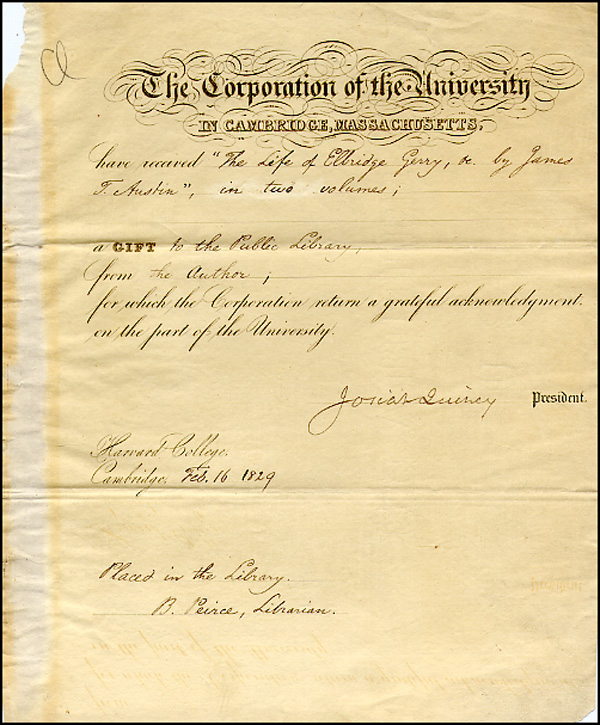 The Corporation of the University
IN CAMBRIDGE, MASSACHUSETTS,
have received "The Life of Elbridge Gerry, &c. by James
T. Austin", in two volumes;
a GIFT to the Public Library,
from the Author;
for which the Corporation return a grateful acknowledgment.
on the part of the University.
Josiah Quincy President.
Harvard College.
Cambridge, Feb. 16 1829
Placed in the Library.
B. Peirce, Librarian.